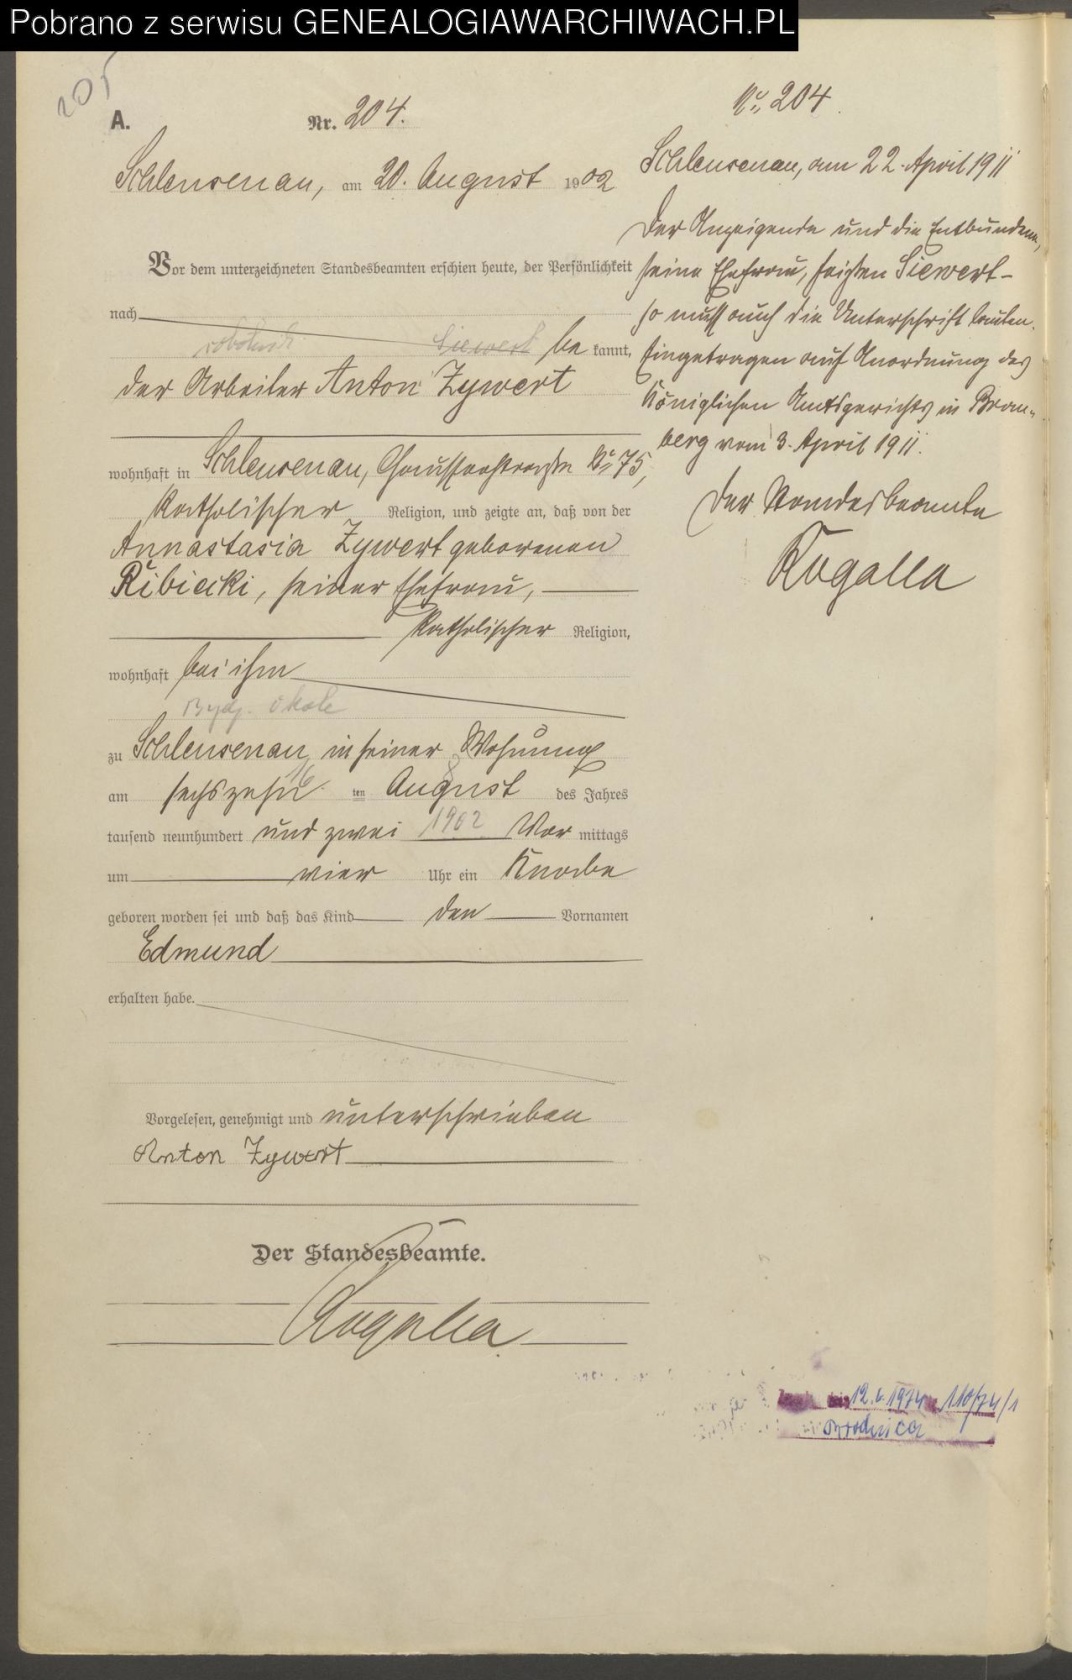 Pobrano z serwisu GENEALOGIAWARCHIWACH.PL
205
A.
Nr. 204.
Schleusenau, am 20. August 1902
Vor dem unterzeichneten Standesbeamten erschien heute, der Persönlichkeit
nach
robotnik Siewert be kannt,
der Arbeiter Anton Zywert
wohnhaft in Schleusenau, Chausseestraße No 75,
katholischer Religion, und zeigte an, daß von der
Annastasia Zywert geborenen
Ribicki, seiner Ehefrau,
katholischer Religion,
wohnhaft bei ihm
Bydg. Okole
zu Schleusenau, in seiner Wohnung
am sechszehn 16 ten August 8 des Jahres
tausend neunhundert und zwei 1902 Vor mittags
um vier Uhr ein Knabe
geboren worden sei und daß das Kind den Vornamen
Edmund
erhalten habe.
Vorgelesen, genehmigt und unterschrieben
Anton Zywert
Der Standesbeamte.
Rogalla
No 204
Schleusenau, am 22. April 1911
Der Anzeigende und die Entbundene,
seine Ehefrau, heißen Siewert-
so muß auch die Unterschrift lauten.
Eingetragen auf Anordnung des
Königlichen Amtsgerichts in Brom-
berg vom 3. April 1911.
Der Standesbeamte
Rogalla
12.6.1974 110/74/1
Brodnica